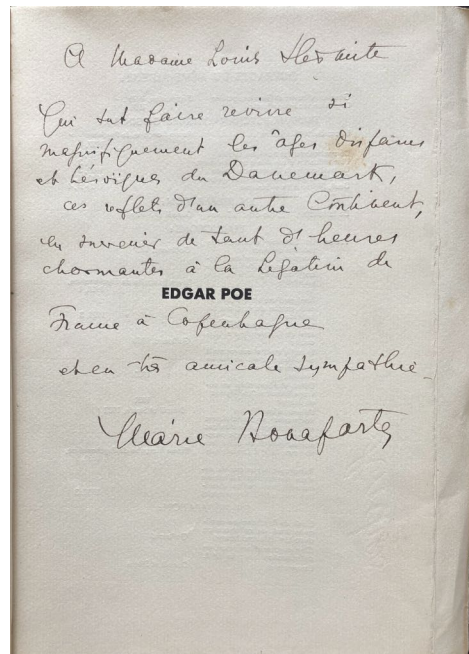 A Madame Louis Hermite
Qui sut faire revivre si
magnifiquement les âges disparus
et héroïques du Danemark,
ces reflets d'un autre Continent,
en souvenir de tant d'heures
charmantes à la Légation de
EDGAR POE
France à Copenhague
et en très amicale sympathie
Marie Bonaparte